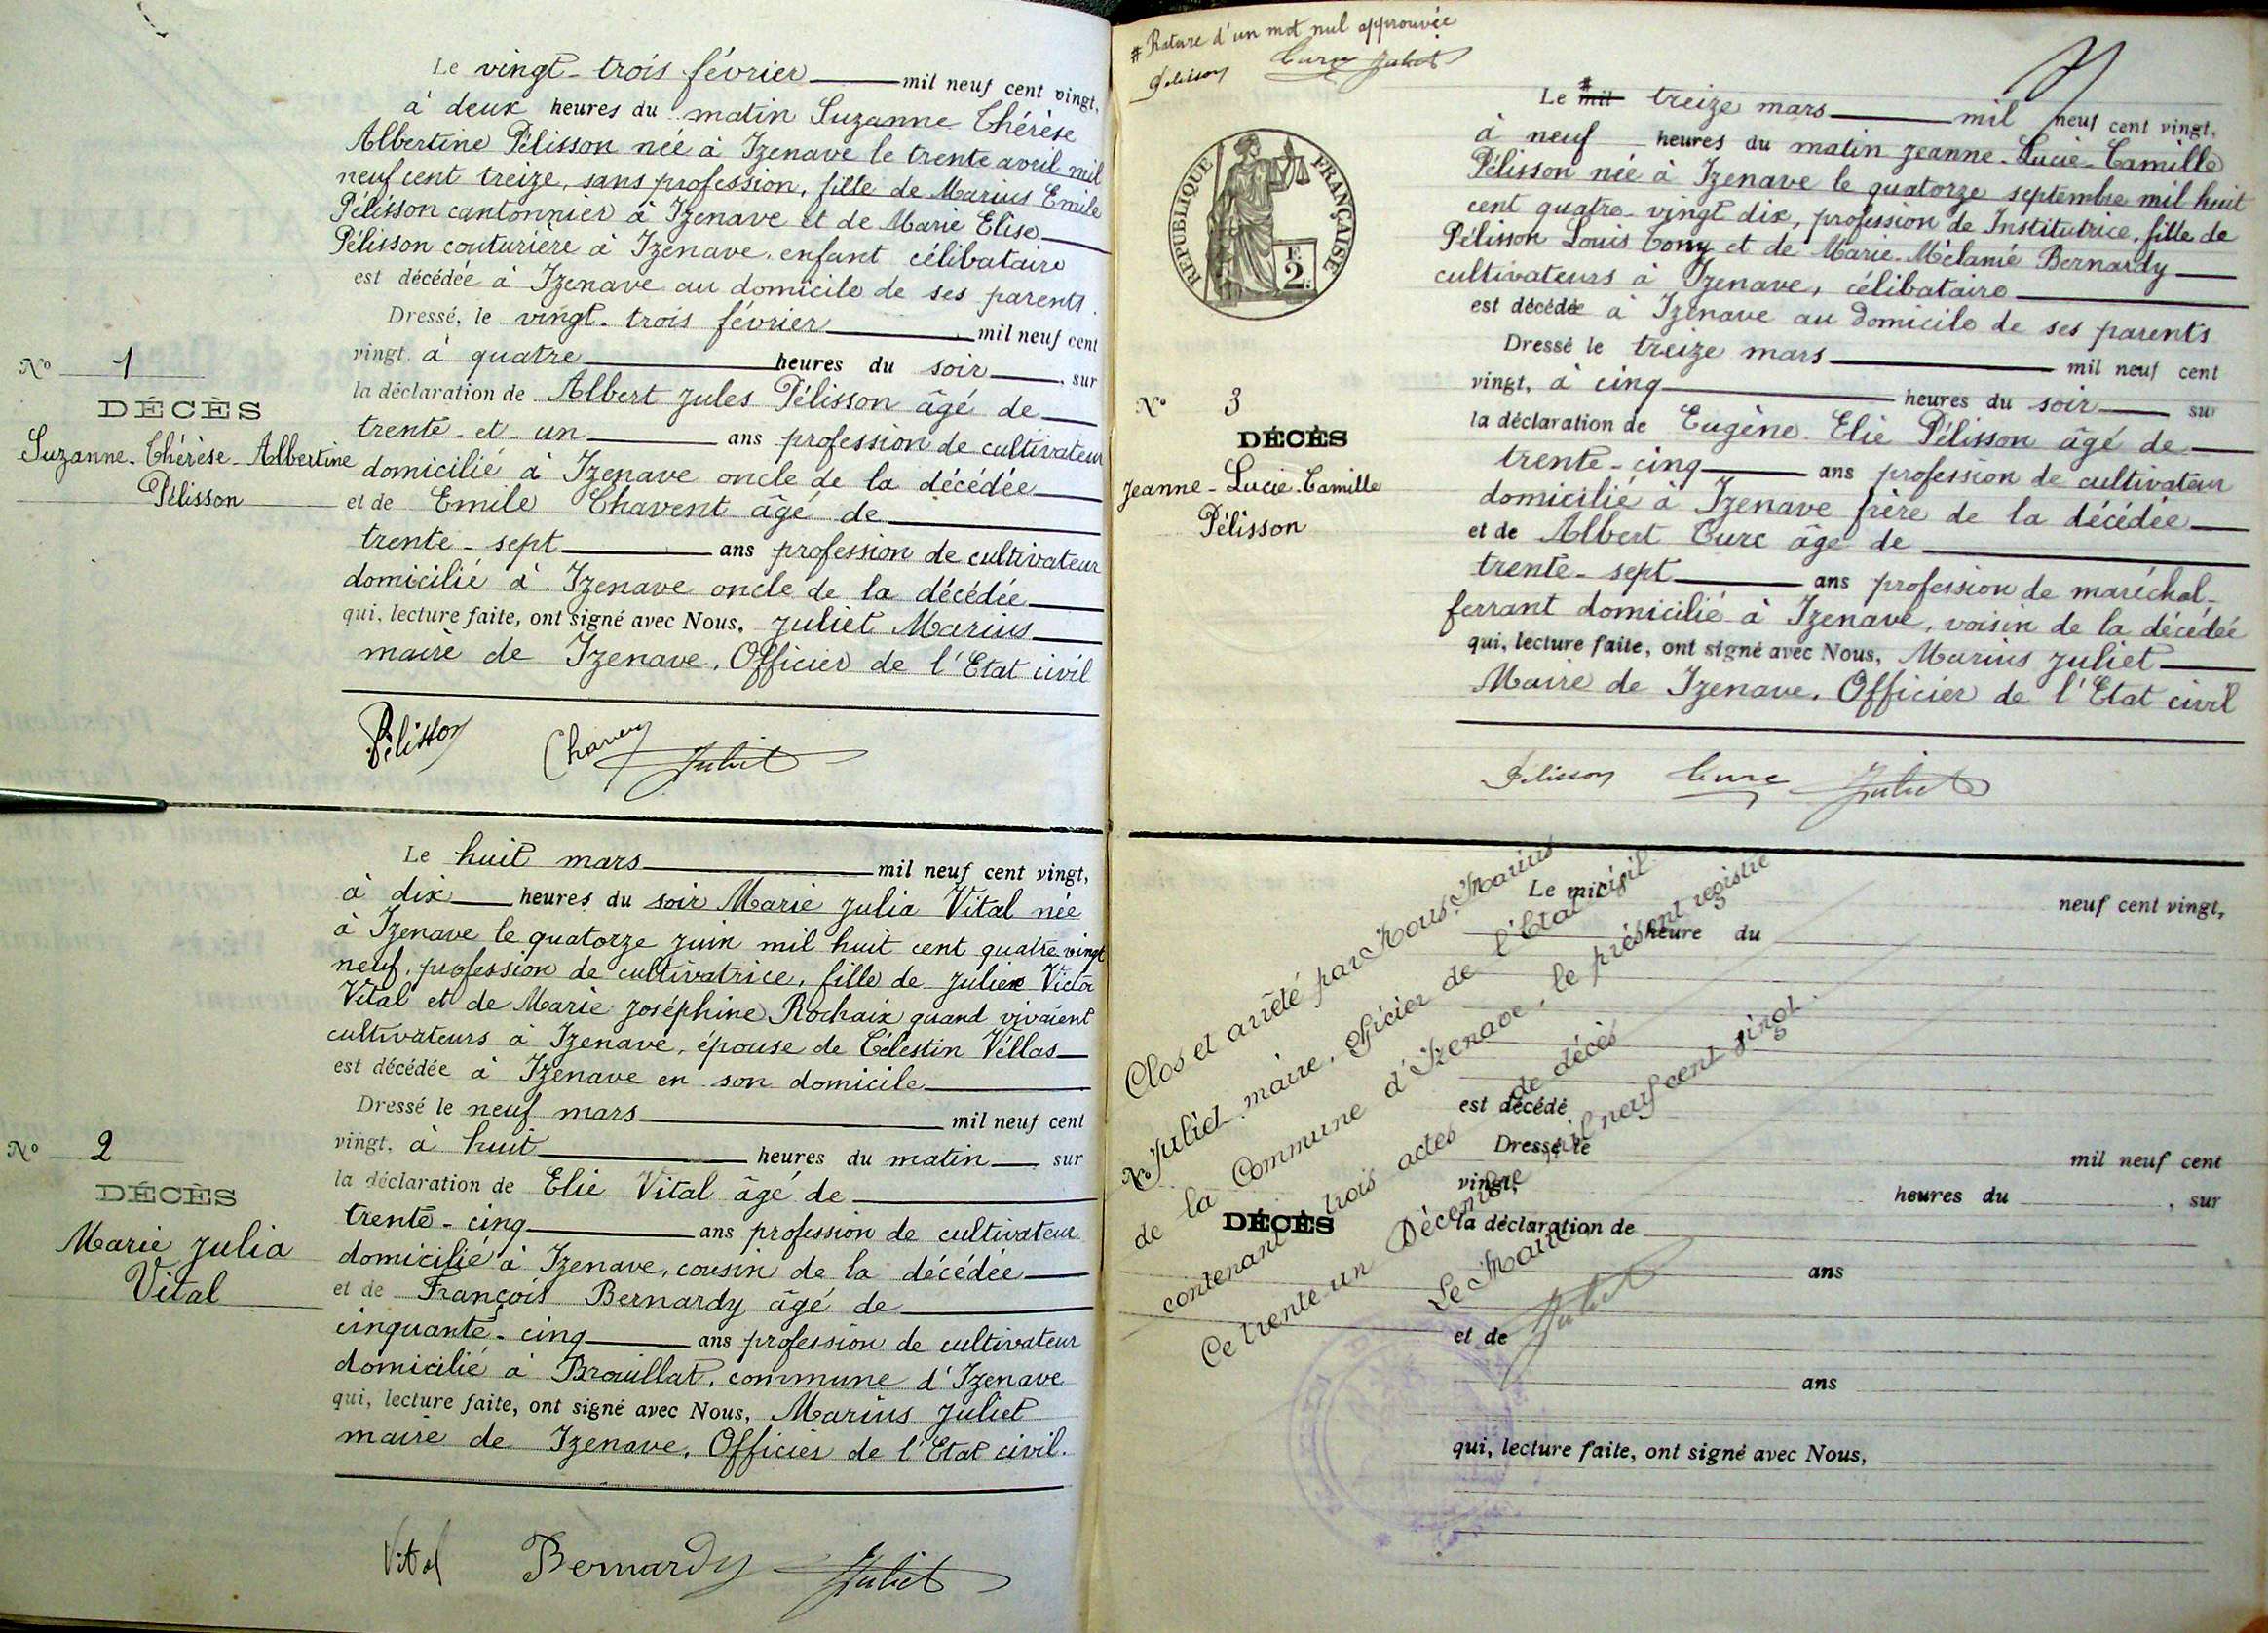 Le vingt-trois février mil neuf cent vingt,
à deux heures du matin Suzanne Thérèse
Albertine Pélisson née à Izenave le trente avril mil
neuf cent treize, sans profession, fille de Marius Emile
Pélisson cantonnier à Izenave et de Marie Elise
Pélisson couturière à Izenave, enfant célibataire
est décédée à Izenave au domicile de ses parents.
Dressé, le vingt-trois février mil neuf cent
vingt, à quatre heures du soir, sur
la déclaration de Albert Jules Pélisson âgé de
trente-et-un ans profession de cultivateur
domicilié à Izenave oncle de la décédée
et de Emile Chavent âgé de
trente-sept ans profession de cultivateur
domicilié à Izenave oncle de la décédée
qui, lecture faite, ont signé avec Nous, Juliet Marius
maire de Izenave, Officier de l'Etat civil
N° 1
DÉCÈS
Suzanne-Thérèse-Albertine
Pélisson
Pélisson Chavent Juliet
Le huit mars mil neuf cent vingt,
à dix heures du soir Marie Julia Vital née
à Izenave le quatorze juin mil huit cent quatre-vingt
neuf, profession de cultivatrice, fille de Julien Victor
Vital et de Marie Joséphine Rochaix quand vivaient
cultivateurs à Izenave, épouse de Célestin Vellas
est décédée à Izenave en son domicile
Dressé le neuf mars mil neuf cent
vingt, à huit heures du matin sur
la déclaration de Elie Vital âgé de
trente-cinq ans profession de cultivateur
domicilié à Izenave, cousin de la décédée
et de François Bernardy âgé de
cinquante-cinq ans profession de cultivateur
domicilié à Brouillat, commune d'Izenave
qui, lecture faite, ont signé avec Nous, Marius Juliet
maire de Izenave, Officier de l'Etat civil.
N° 2
DÉCÈS
Marie Julia
Vital
Vital Bernardy Juliet
# Rature d'un mot nul approuvée
Pelisson Curc Juliet
RÉPUBLIQUE FRANÇAISE
2
Le # mil treize mars mil neuf cent vingt,
à neuf heures du matin Jeanne-Lucie-Camille
Pélisson née à Izenave le quatorze septembre mil huit
cent quatre-vingt dix, profession de Institutrice, fille de
Pélisson Louis Tony et de Marie-Mélanie Bernardy
cultivateurs à Izenave, célibataire
est décédée à Izenave au domicile de ses parents
Dressé le treize mars mil neuf cent
vingt, à cinq heures du soir sur
la déclaration de Eugène Elie Pélisson âgé de
trente-cinq ans profession de cultivateur
domicilié à Izenave frère de la décédée
et de Albert Curc âgé de
trente-sept ans profession de maréchal-
ferrant domicilié à Izenave, voisin de la décédée
qui, lecture faite, ont signé avec Nous, Marius Juliet
Maire de Izenave, Officier de l'Etat civil
N° 3
DÉCÈS
Jeanne-Lucie-Camille
Pélisson
Pelisson Curc Juliet
Clos et arrêté par Nous, Marius
Juliet maire, Officier de l'Etat civil
de la Commune d'Izenave, le présent registre
contenant trois actes de décès
Ce trente un Décembre mil neuf cent vingt.
Le Maire,
Juliet
Le mil neuf cent vingt,
heure du
est décédé
Dressé le mil neuf cent
vingt, heures du , sur
la déclaration de
ans
et de
ans
qui, lecture faite, ont signé avec Nous,
N°
DÉCÈS